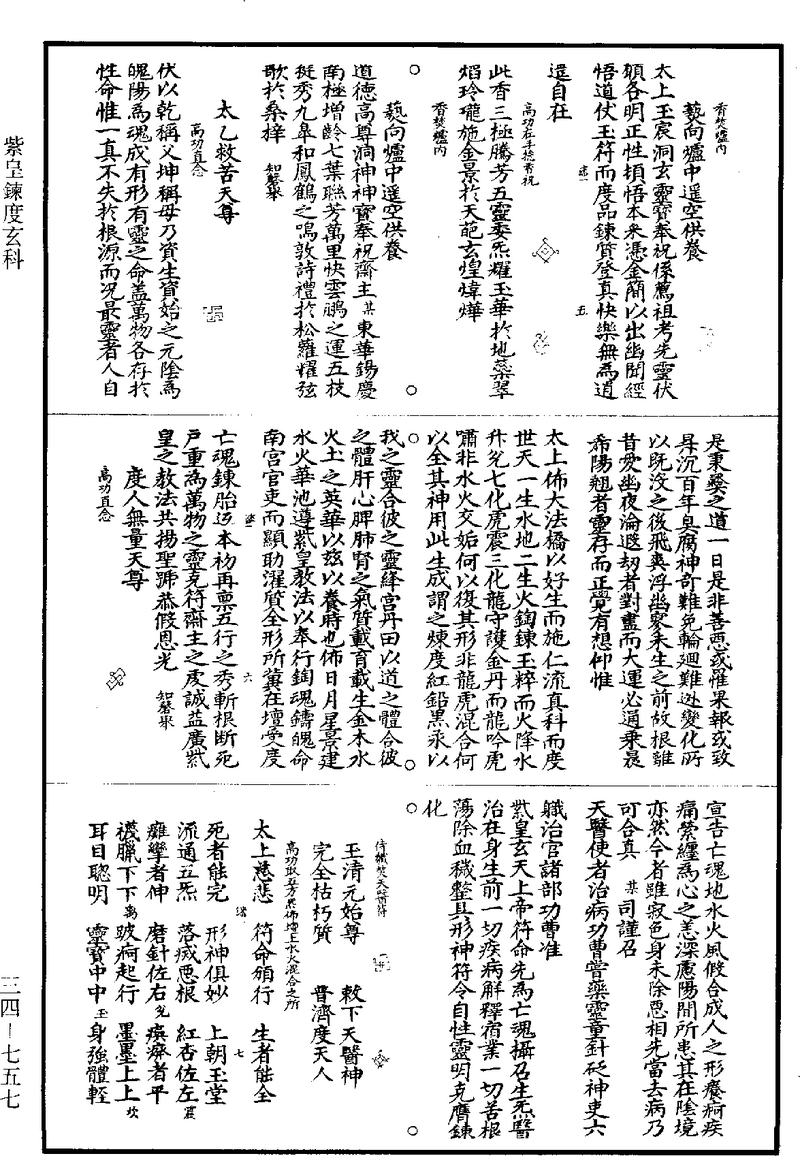 香焚爐內
爇向爐中遥空供養
太上玉宸洞玄靈寶奉祝係薦祖考先靈伏
願各明正性頓悟本來憑金簡以出幽聞經
悟道伏玉符而度品鍊質登真快樂無為逍
遥自在
高功右手捻香祝
此香三極騰芳五靈委炁耀玉華於地蘂翠
焰玲瓏施金景於天葩玄煌煒燁
香焚爐內
爇向爐中遥空供養
道德高尊洞神神寶奉祝齋主某東華錫慶
南極增齡七葉聯芳萬里快雲鵬之運五枝
挺秀九皐和鳳鶴之鳴敦詩禮於松蘿耀弦
歌於桑梓 知磬舉
太乙救苦天尊
高功直念
伏以乾稱父坤稱母乃資生資始之元陰為
魄陽為魂成有形有靈之命盖萬物各存於
性命惟一真不失於根源而况最靈者人自
是秉彝之道一日是非善惡或罹果報或致
异沉百年臭腐神奇難免輪廻難迯變化所
以既没之後飛爽浮幽聚未生之前故根雖
昔爱幽夜淪遐劫者對盡而大運必通乘晨
希陽翹者靈存而正覺有想仰惟
太上佈大法橋以好生而施仁流真科而度
世天一生水地二生火鍧鍊玉粹而火降水
升兌七化虎震三化龍守護金丹而龍吟虎
嘯非水火交姤何以復其形非龍虎混合何
以全其神用此生成謂之煉度紅鉛黑汞以
我之靈合彼之靈絳宮丹田以道之體合彼
之體肝心脾肺腎之氣質載育載生金木水
火土之英華以玆以養時也佈日月星景建
水火華池遵紫皇教法以奉行鍧魂鑄魄命
南宮官吏而顯助濯質全形所冀在壇受度
亡魂鍊胎返本初再禀五行之秀斬根断死
戸重為萬物之靈克符齋主之虔誠益廣紫
皇之教法共揚聖號恭假恩光 知磬舉
度人無量天尊
高功直念
宣告亡魂地水火風假合成人之形癢痾疾
痛縈纏為心之恙深慮陽間所患其在陰境
亦然今者雖寂色身未除惡相先當去病乃
可合真 某司謹召
天醫使者治病功曹嘗藥靈童針砭神吏六
職治官諸部功曹准
紫皇玄天上帝符命先為亡魂攝召生炁醫
治在身生前一切疾病解釋宿業一切苦根
蕩除血穢整具形神符令自性靈明克膺鍊
化
侍職焚天醫符
玉清元始尊 敕下天醫神
完全枯朽質 普濟度天人
太上慈悲 符命頒行 生者能全
死者能完 形神俱妙 上朝玉堂
流通五炁 落滅惡根 紅杏佐左震
癱攣者伸 磨針佐右兌 瘼瘵者平
禯臘下下离 跛痾起行 墨墨上上坎
耳目聰明 靈寶中中玉 身強體輕
紫皇鍊度玄科
三四－七五七